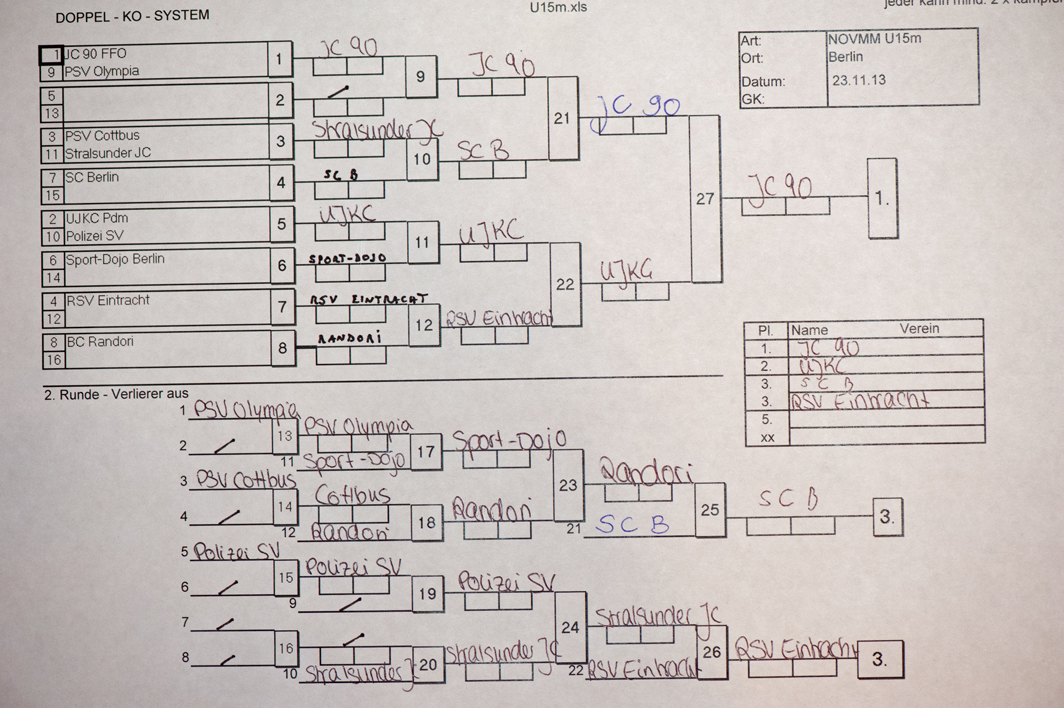 U15m.xls
jeder kann mind. 2 x kämpfen
DOPPEL - KO - SYSTEM
Art: NOVMM U15m
Ort: Berlin
Datum: 23.11.13
GK:
1 JC 90 FFO
9 PSV Olympia
1
JC 90
9
JC 90
5
13
2
21
JC 90
3 PSV Cottbus
11 Stralsunder JC
3
Stralsunder JC
10
SC B
7 SC Berlin
15
4
SC B
27
JC 90
1.
2 UJKC Pdm
10 Polizei SV
5
UJKC
11
UJKC
6 Sport-Dojo Berlin
14
6
SPORT-DOJO
22
UJKC
4 RSV Eintracht
12
7
RSV EINTRACHT
12
RSV Eintracht
8 BC Randori
16
8
RANDORI
Pl. Name Verein
1. JC 90
2. UJKC
3. SCB
3. RSV Eintracht
5.
xx
2. Runde - Verlierer aus
1 PSV Olympia
2
13
PSV Olympia
11 Sport-Dojo
17
Sport-Dojo
3 PSV Cottbus
4
14
Cottbus
12 Randori
18
Randori
23
Randori
21 SCB
25
SCB
3.
5 Polizei SV
6
15
Polizei SV
9
19
Polizei SV
7
8
16
10 Stralsunder JC
20
Stralsunder JC
24
Stralsunder JC
22 RSV Eintracht
26
RSV Eintracht
3.